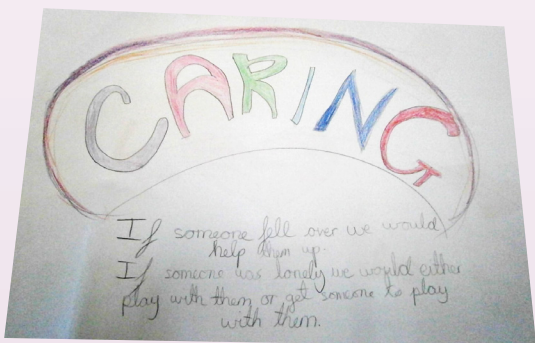 CARING
If someone fell over we would
help them up.
If someone was lonely we would either
play with them or get someone to play
with them.